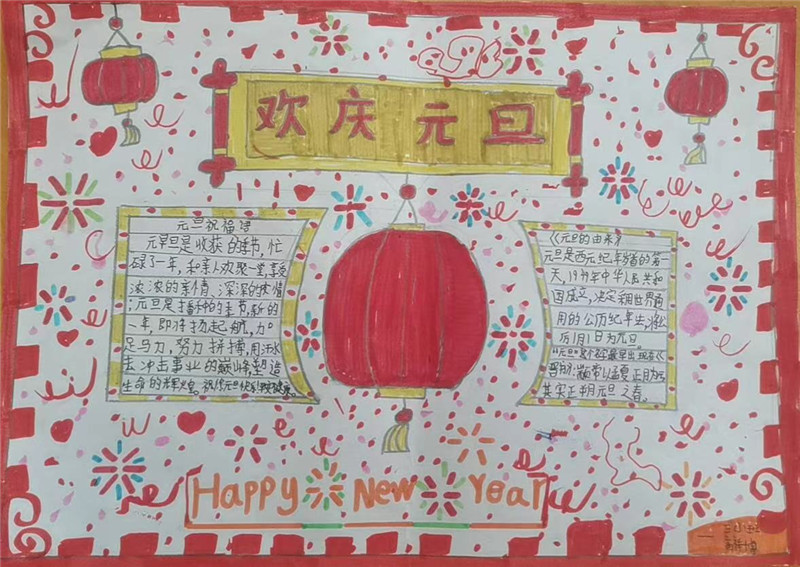 欢庆元旦
元旦祝福语
元旦是收获的季节，忙
碌了一年，和亲人欢聚一堂，享受
浓浓的亲情、深深的友情
；元旦是播种的季节，新的
一年，即将扬起航，加
足马力，努力拼搏，用汗水
去冲击事业的巅峰，塑造
生命的辉煌。祝你元旦快乐
《元旦的由来》
元旦是西元纪年的第一
天，1949年中华人民共和
国成立，决定采用世界通
用的公历纪年法，将公
历1月1日为元旦
"元旦"这个称最早出现在《
其实正月元旦之春。
Happy New Year